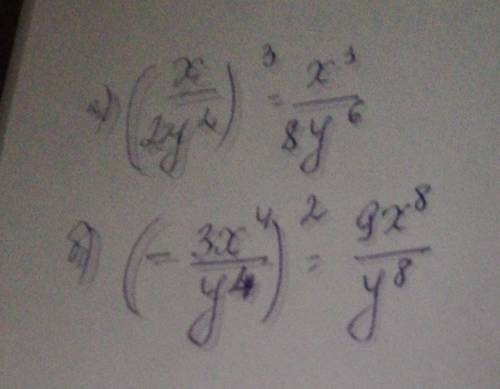 а) (x/2y²)³ = x³/8y⁶
б) (- 3x⁴/y⁴)² = 9x⁸/y⁸